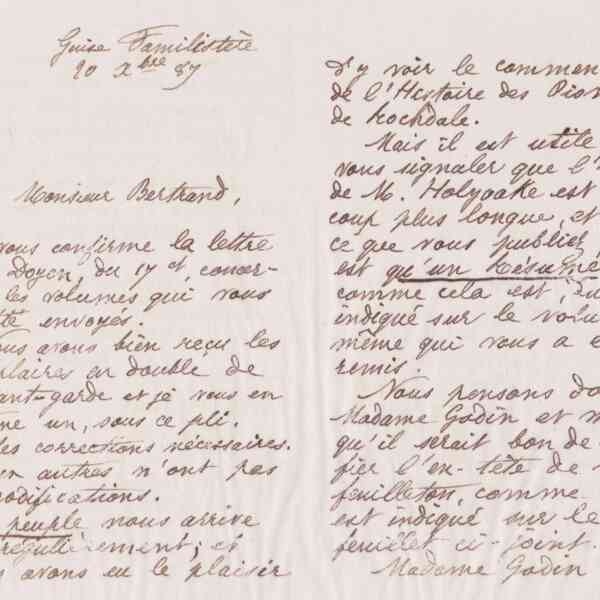 Guise Familistère
20 Xbre 87
Monsieur Bertrand,
vous confirme la lettre
Doyen, du 17 ct, concer-
les volumes qui vous
été envoyés.
ous avons bien reçu les
plaires en double de
ant-garde et je vous en
ne un, sous ce pli.
les corrections nécessaires.
en autres n'ont pas
odifications.
peuple nous arrive
régulièrement; et
s avons eu le plaisir
d'y voir le commen
de l'Histoire des Pion
de Rochdale.
Mais il est utile
vous signaler que l'
de M. Holyoake est
coup plus longue, et
ce que vous publiez
est qu'un Résumé
comme cela est, du
indiqué sur le volu
même qui vous a é
remis.
Nous pensons do
Madame Godin et m
qu'il serait bon de
fier l'en-tête de
feuilleton, comme
est indiqué sur le
feuillet ci-joint.
Madame Godin